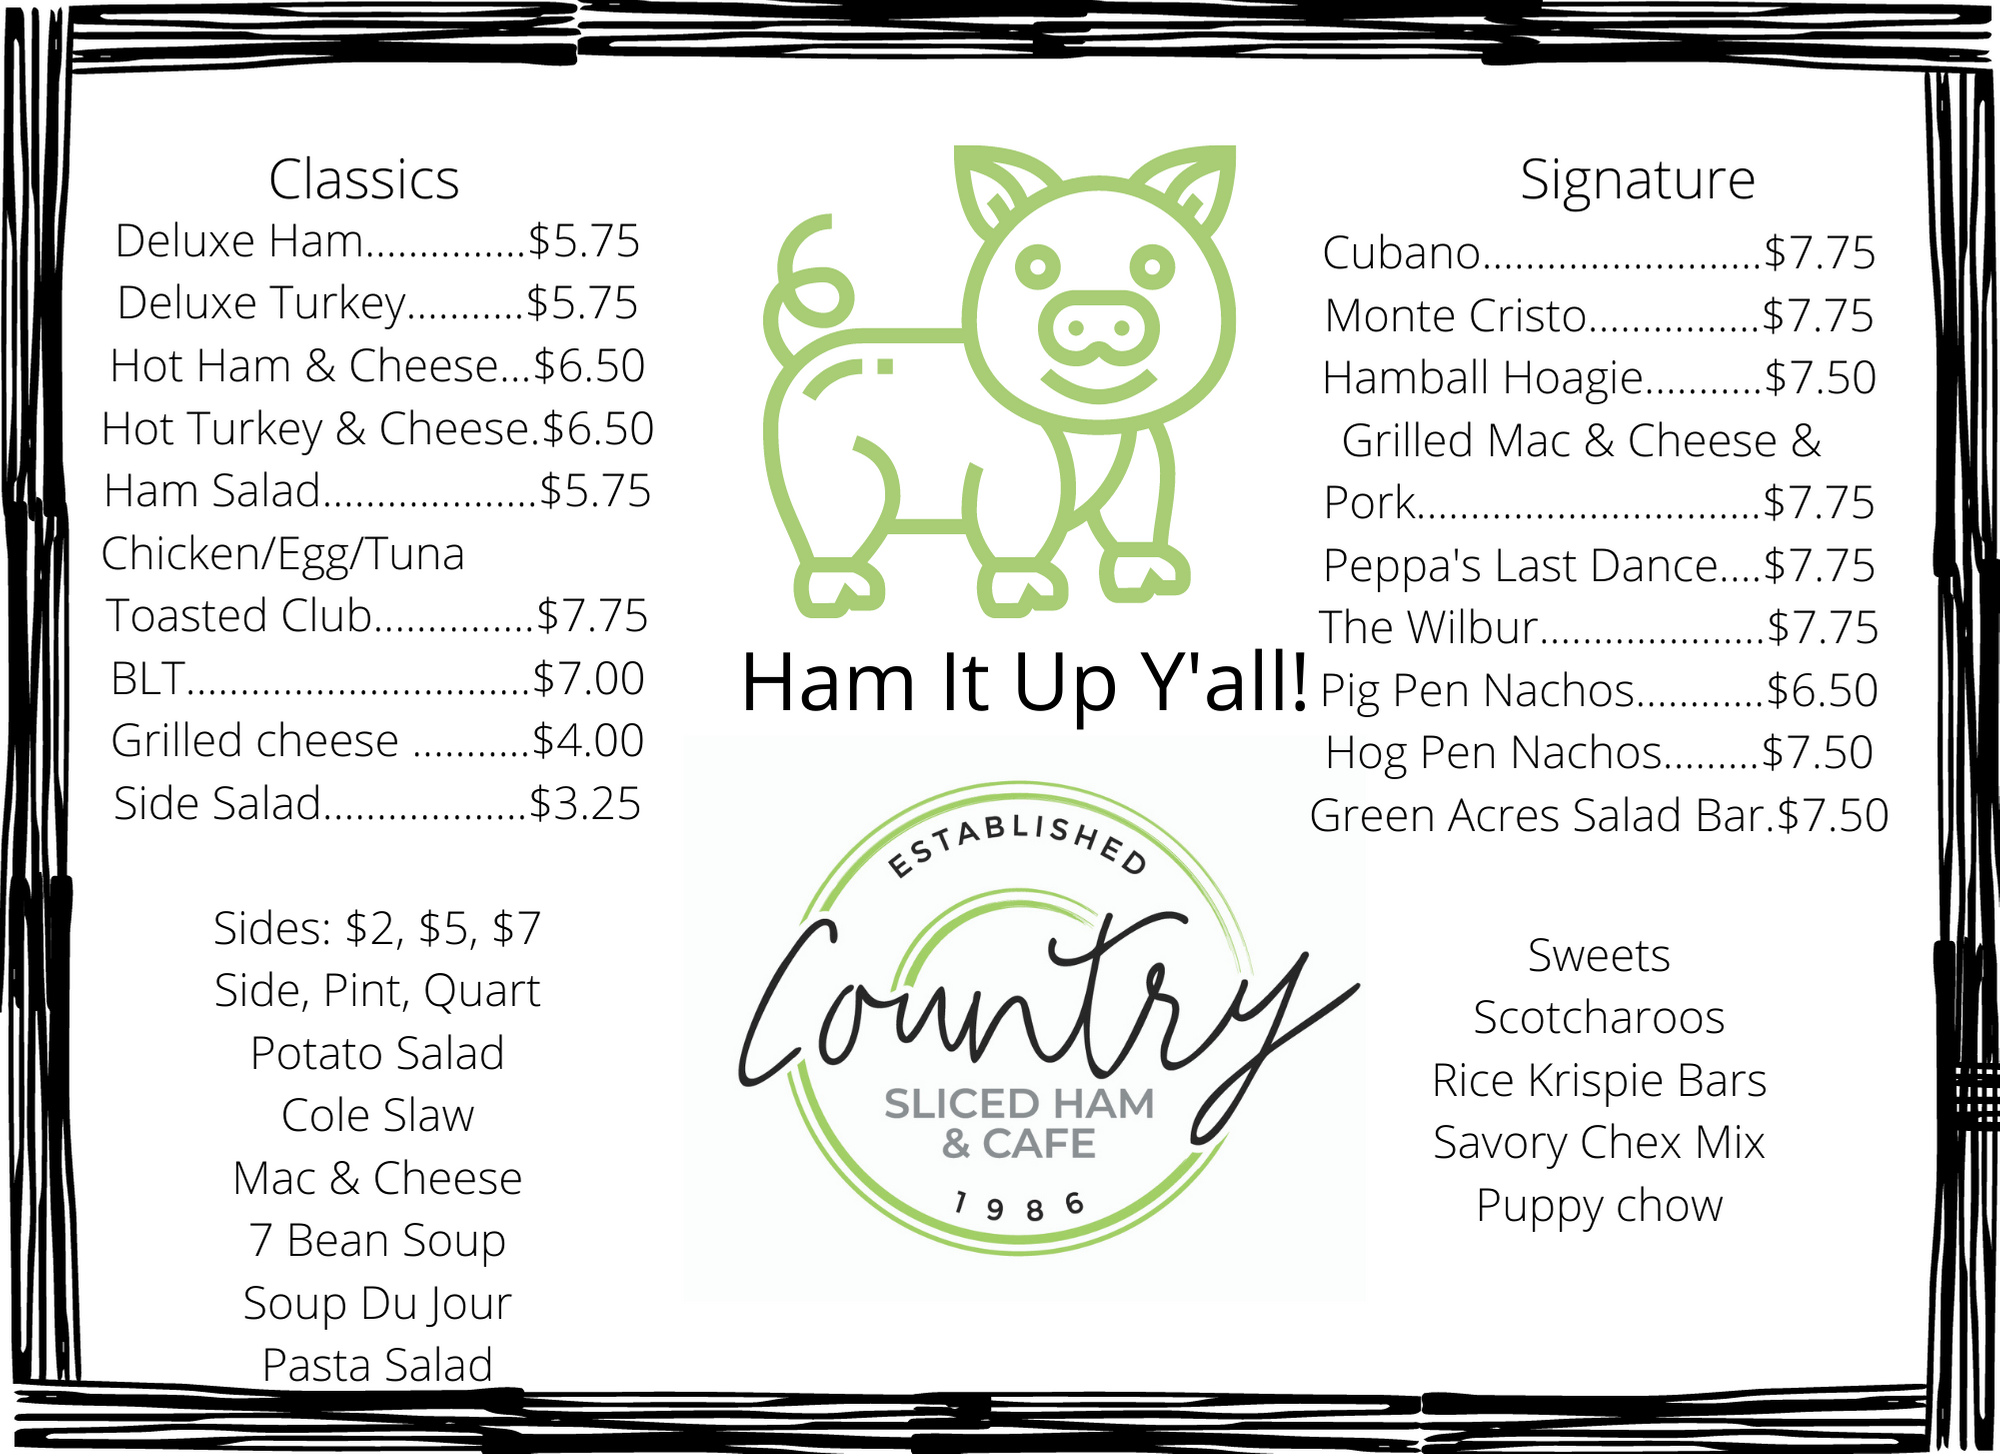 Classics
Deluxe Ham...............$5.75
Deluxe Turkey...........$5.75
Hot Ham & Cheese...$6.50
Hot Turkey & Cheese.$6.50
Ham Salad....................$5.75
Chicken/Egg/Tuna
Toasted Club...............$7.75
BLT................................$7.00
Grilled cheese ...........$4.00
Side Salad...................$3.25
Sides: $2, $5, $7
Side, Pint, Quart
Potato Salad
Cole Slaw
Mac & Cheese
7 Bean Soup
Soup Du Jour
Pasta Salad
Ham It Up Y'all!
ESTABLISHED
Country
SLICED HAM
& CAFE
1986
Signature
Cubano..........................$7.75
Monte Cristo................$7.75
Hamball Hoagie...........$7.50
Grilled Mac & Cheese &
Pork................................$7.75
Peppa's Last Dance....$7.75
The Wilbur.....................$7.75
Pig Pen Nachos............$6.50
Hog Pen Nachos.........$7.50
Green Acres Salad Bar.$7.50
Sweets
Scotcharoos
Rice Krispie Bars
Savory Chex Mix
Puppy chow